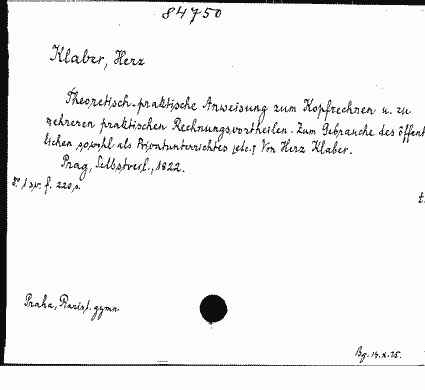 84750
Klaber, Herz
Theoretisch-praktische Anweisung zum Kopfrechnen u. zu
mehreren praktischen Rechnungsvortheilen. Zum Gebrauche des öffent
lichen sowohl als Privatunterrichtes [etc.] Von Herz Klaber.
Prag, Selbstverl., 1822.
f. 220 s.
Praha, gymn.
Bg. 14.X.25.